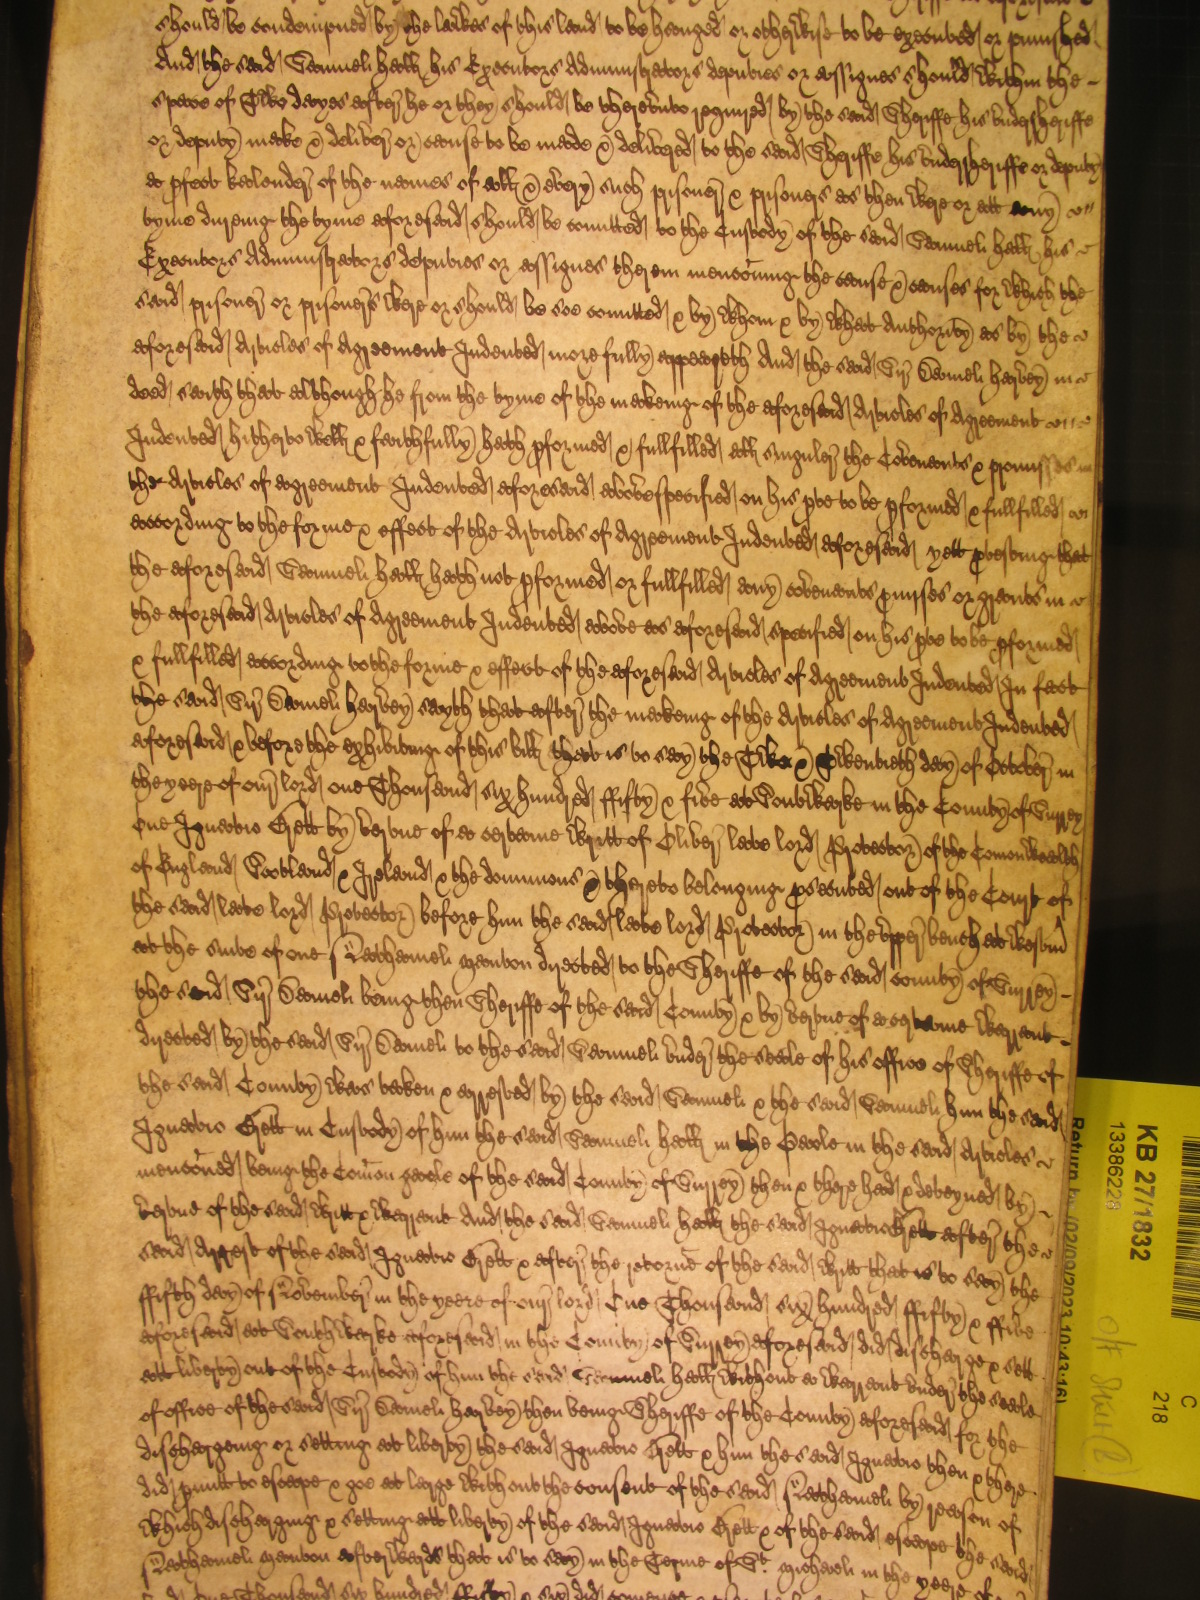 should be condempned by the lawes of this land to be hanged or otherwise to be executed or punished
And the said Samuell Hall his Executors Administrators deputies or assignes should within the
space of Two dayes after he or they should be therevnto required by the said Sheriffe his vndersheriffe
or deputy make & deliver or cause to be made & delivered to the said Sheriffe his vndersheriffe or deputy
a pfect kalender of the names of all & every such prisoner & prisoners as then were or att any
tyme dureing the tyme aforesaid should be comitted to the Custody of the said Samuell Hall his
Executors Administrators deputies or assignes therein menconing the cause & causes for which the
said prisoner or prisoners were or should be soe comitted & by whom & by what Authority as by the
aforesaid Articles of Agreement Indented more fully appeareth And the said Sir Daniell Harvey in
deed saith that although he from the tyme of the makeing of the aforesaid Articles of Agreement
Indented hitherto well & faithfully hath pformed & fullfilled all singuler the Covenants & promisses in
the Articles of agreement Indented aforesaid abovespecified on his pte to be pformed & fullfilled
according to the forme & effect of the Articles of Agreement Indented aforesaid yett ptesting that
the aforesaid Samuell Hall hath not pformed or fullfilled any covenants pmises or grants in
the aforesaid Articles of Agreement Indented above as aforesaid specified on his pte to be pformed
& fullfilled according to the forme & effect of the aforesaid Articles of Agreement Indented In fact
the said Sir Daniell Harvey sayth that after the makeing of the Articles of Agreement Indented
aforesaid & before the exhibiting of this bill that is to say the Two & Twentieth day of October in
the yeere of our lord one Thousand six hundred fifty & five at Southwarke in the County of Surrey
one Ignatio Grett by vertue of a certaine writt of Oliver late lord Protector of the Comonwealth
of England Scotland & Ireland & the dominions thereto belonging psecuted out of the Court of
the said late lord Protector before him the said late lord Protector in the vpper bench at Westm
at the suite of one Nathaniell Manton directed to the Sheriffe of the said county of Surrey
the said Sir Daniell being then Sheriffe of the said County & by vertue of a certaine warrant
directed by the said Sir Daniell to the said Samuell vnder the seale of his office of Sheriffe of
the said County was taken & arrested by the said Samuell & the said Samuell him the said
Ignatio Grett in Custody of him the said Samuell Hall in the Gaole in the said Articles
menconed being the Comon gaole of the said County of Surrey then & there had & deteyned by
vertue of the said writt & warrant And the said Samuell Hall the said Ignatio Grett after the
said Arrest of the said Ignatio Grett & after the retorne of the said writt that is to say the
ffifth day of November in the yeere of our lord One Thousand six hundred ffifty & ffive
aforesaid at Southwarke aforesaid in the County of Surrey aforesaid did discharge & sett
att liberty out of the Custody of him the said Samuell Hall without a warrant vnder the seale
of office of the said Sir Daniell Harvey then being Sheriffe of the County aforesaid for the
dischargeing or setting at liberty the said Ignatio Grett & him the said Ignatio then & there
did pmitt to escape & goe at large without the consent of the said Nathaniell by reason of
which discharging & setting att liberty of the said Ignatio Grett & of the said escape the said
Nathaniell Manton afterwards that is to say in the Terme of St. Michaell in the yeere of
One Thousand six hundred ffifty & six did comence
KB 27/1832
13386228
Return by (02/09/2023 10:43:16)
C
218